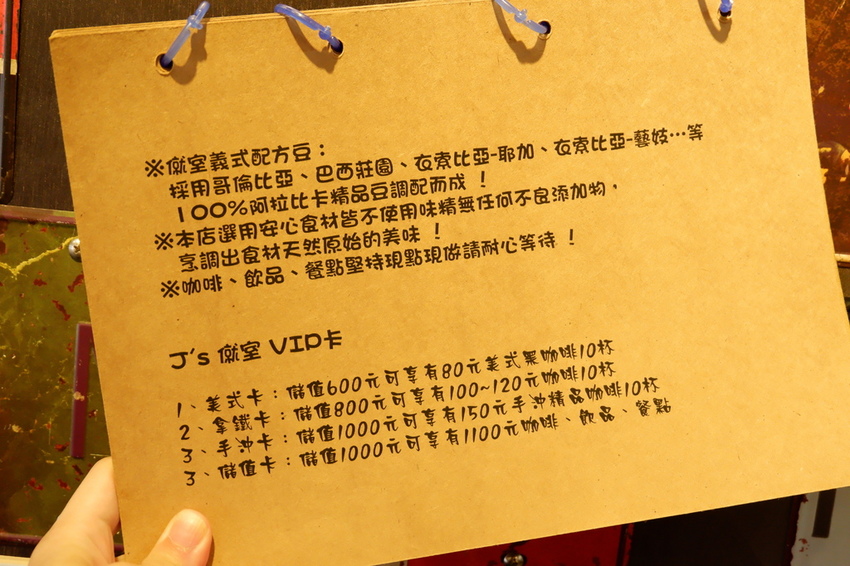 ※僦室義式配方豆：
採用哥倫比亞、巴西莊園、衣索比亞-耶加、衣索比亞-藝妓…等
100%阿拉比卡精品豆調配而成！
※本店選用安心食材皆不使用味精無任何不良添加物，
烹調出食材天然原始的美味！
※咖啡、飲品、餐點堅持現點現做請耐心等待！
J's 僦室 VIP卡
1、美式卡：儲值600元可享有80元美式黑咖啡10杯
2、拿鐵卡：儲值800元可享有100~120元咖啡10杯
3、手沖卡：儲值1000元可享有150元手沖精品咖啡10杯
3、儲值卡：儲值1000元可享有1100元咖啡、飲品、餐點